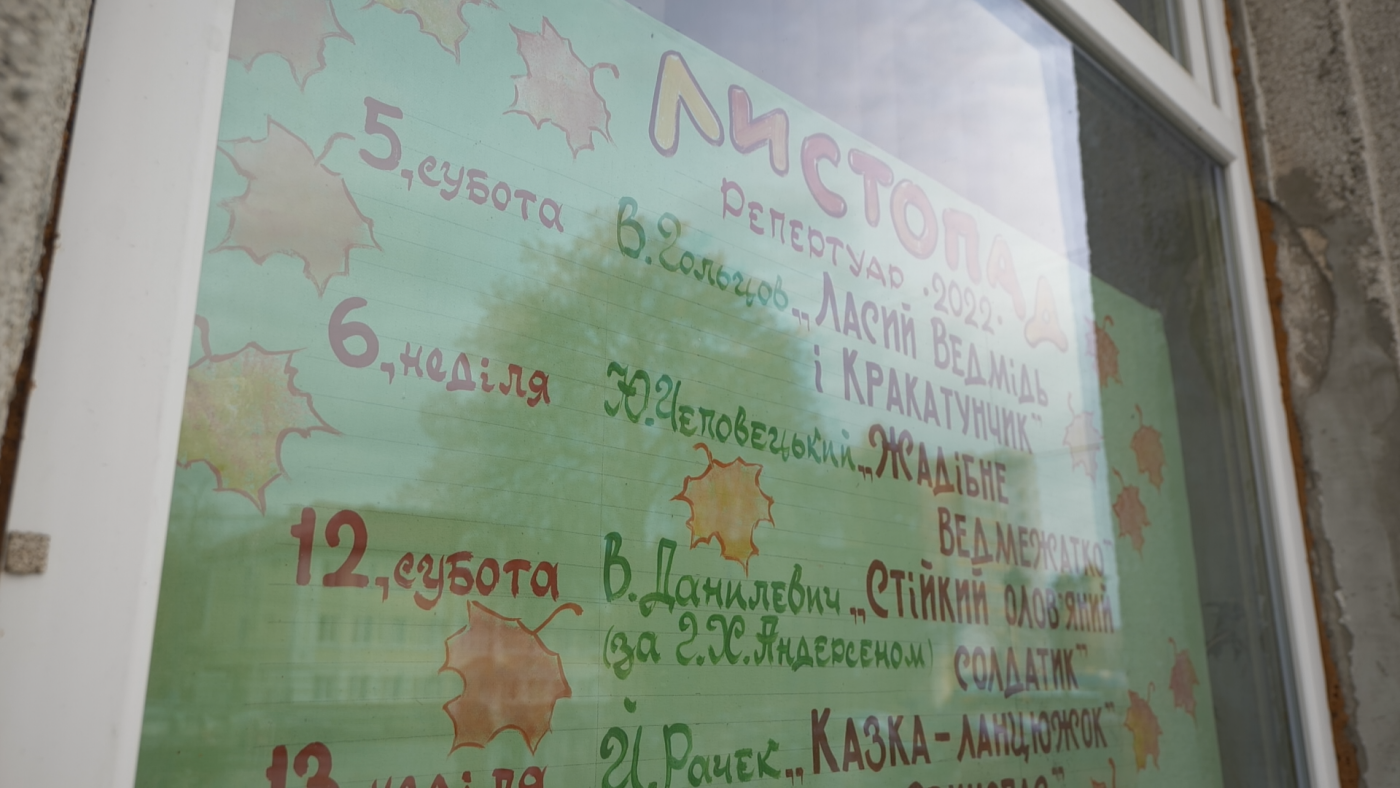 ЛИСТОПАД
РЕПЕРТУАР .2022.
5,субота В.Гольцов „ЛАСИЙ ВЕДМІДЬ
і КРАКАТУНЧИК"
6,неділя Ю.Чеповецький „ЖАДІБНЕ
ВЕДМЕЖАТКО"
12,субота В.Данилевич „СТІЙКИЙ ОЛОВ'ЯНИЙ
(за Г.Х.Андерсеном) СОЛДАТИК"
13, неділя Й.Рачек „КАЗКА-ЛАНЦЮЖОК"